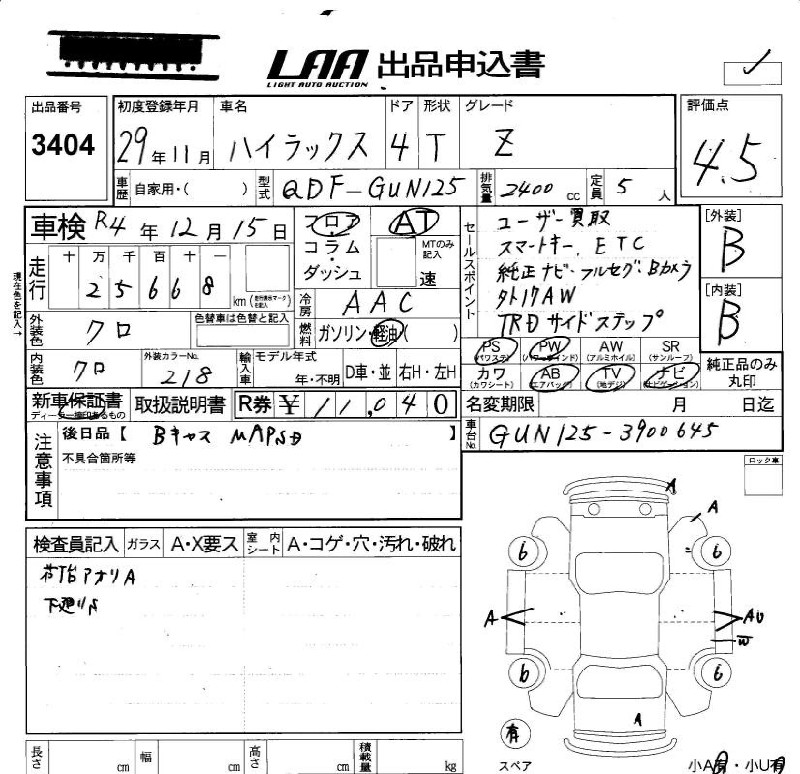 LAA 出品申込書
LIGHT AUTO AUCTION
出品番号 3404
初度登録年月 29年11月
車名 ハイラックス
ドア 4
形状 T
グレード Z
評価点 4.5
車歴 自家用・( )
型式 QDF-GUN125
排気量 2400 cc
定員 5 人
車検 R4年12月15日
フロア
コラム・
ダッシュ
AT
MTのみ記入
速
セールスポイント
ユーザー買取
スマートキー、ETC
純正ナビ・フルセグ・Bカメラ
TRDサイドステップ
[外装] B
[内装] B
現在色を記入→
走行 十 万 千 百 十 一
2 5 6 6 8 km
冷房 AAC
外装色 クロ
色替車は色替と記入
燃料 ガソリン・軽油( )
内装色 クロ
外装カラーNo. 218
輸入車 モデル年式
年・不明
D車・並 右H・左H
PS (パワステ) PW (パワーウインド) AW (アルミホイル) SR (サンルーフ)
カワ (カワシート) AB (エアバッグ) TV (地デジ) ナビ (ナビゲーション)
純正品のみ丸印
新車保証書
ディーラー車印あるもの
取扱説明書
R券 ¥ 11,040
名変期限 月 日迄
車台No. GUN125-3900645
注意事項
後日品【 Bキャス MAPSD 】
不具合箇所等
ロック車
検査員記入 ガラス A・X要ス 室内シート A・コゲ・穴・汚れ・破れ
荷台アオリA
下廻りS
A
A
6 6
A AU
W
6 6
A
有
スペア
小A有・小U有
長さ cm 幅 cm 高さ cm 積載量 kg